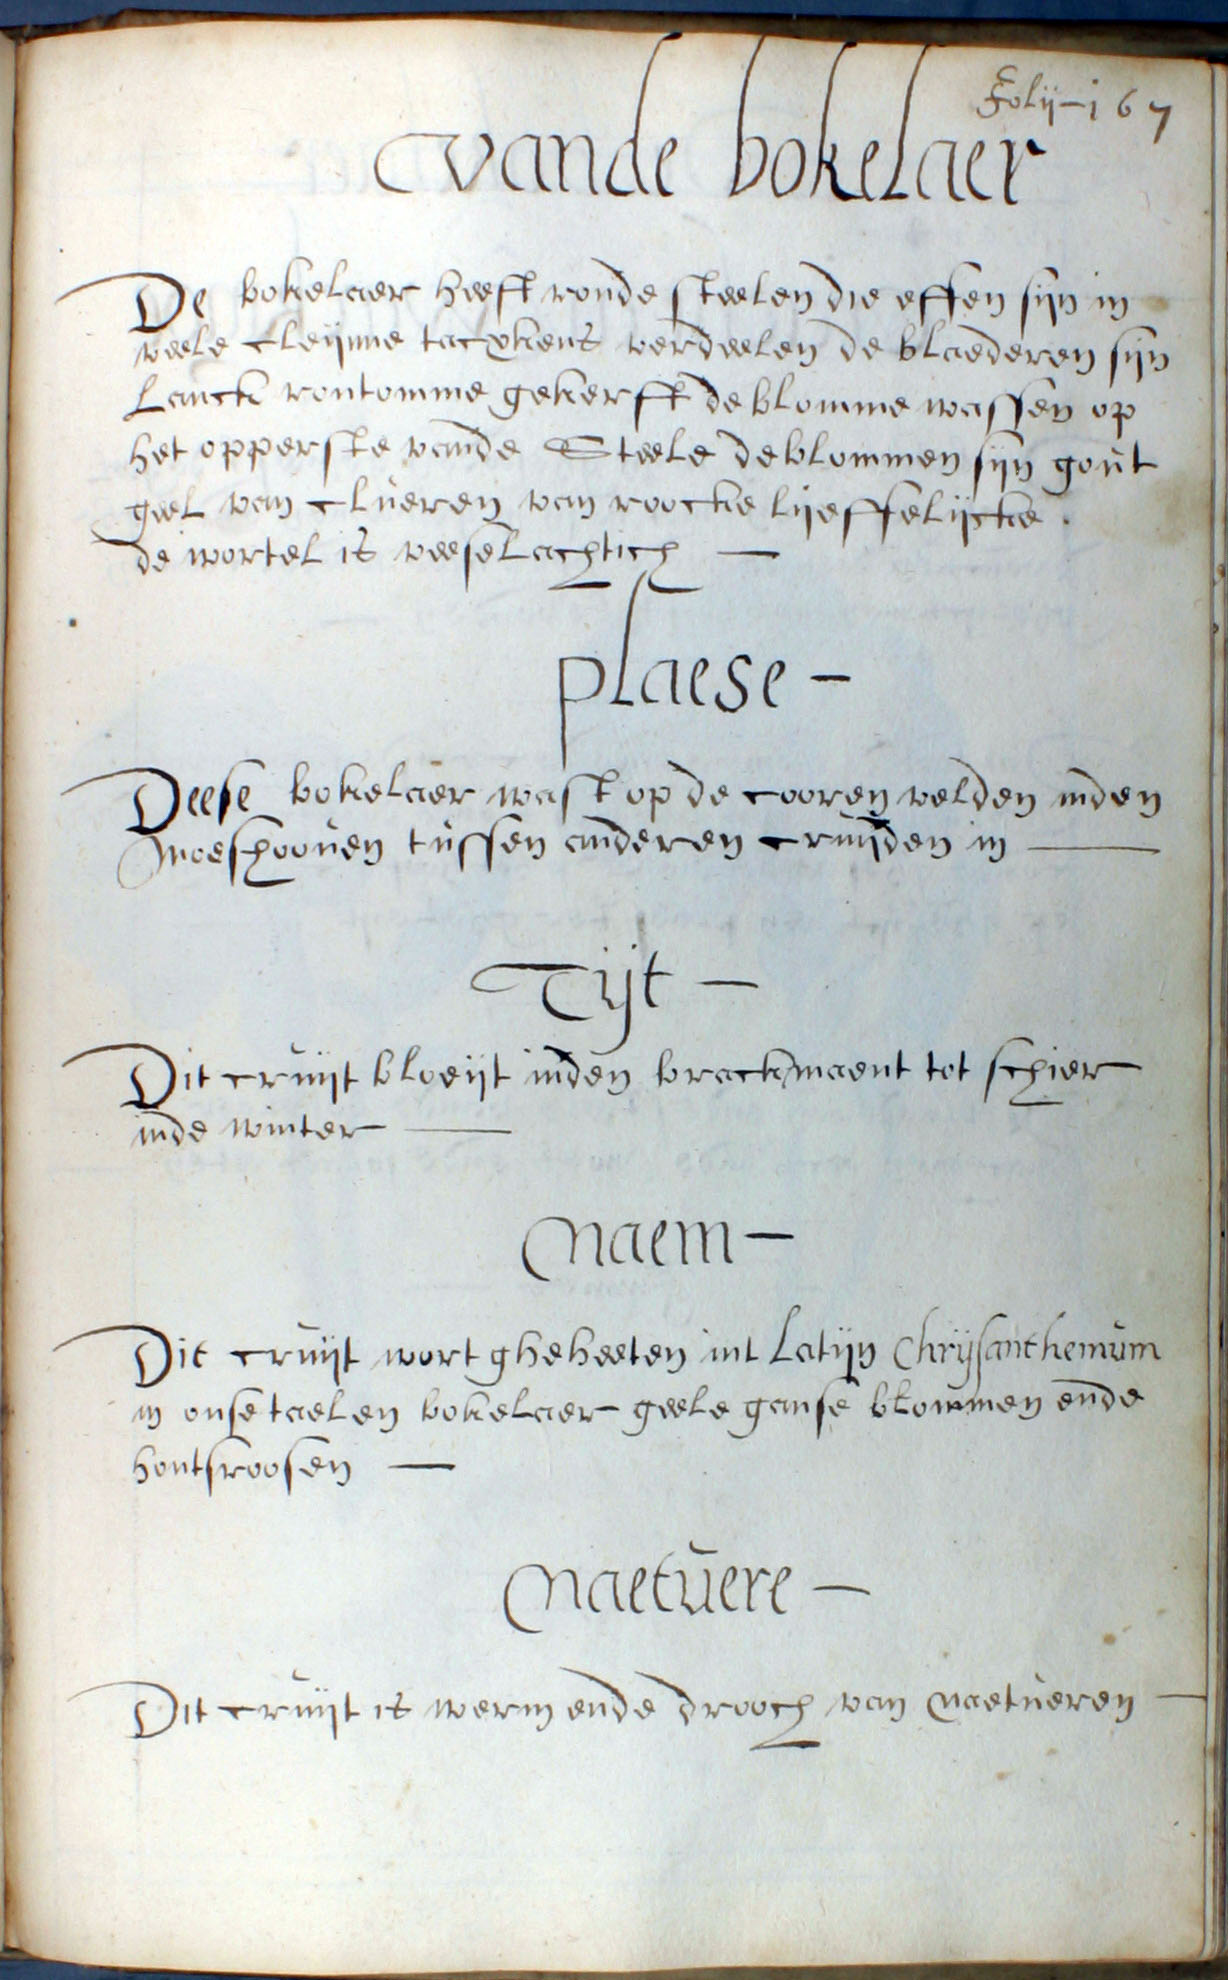 Folij 167
vande bokelaer
De bokelaer heeft ronde steelen die effen sijn in
veele cleijnne tacxkens verdeelen de blaederen sijn
Lanck rontomme gekerft de blomme wassen op
het opperste vande Steele de blommen sijn gout
geel van clueren van roocke lijeffelijcke .
de wortel is veeselachtich —
plaese —
Deese bokelaer wast op de cooren velden inden
moeshooven tussen anderen cruijden in —
Tijt —
Dit cruijt bloeijt inden brackmaent tot schier
inde winter —
Naem —
Dit cruijt wort gheheeten int Latijn Chrijsanthemum
in onse taelen bokelaer geele ganse blommen ende
hontsroosen —
Naetuere —
Dit cruijt is werm ende drooch van naetueren —